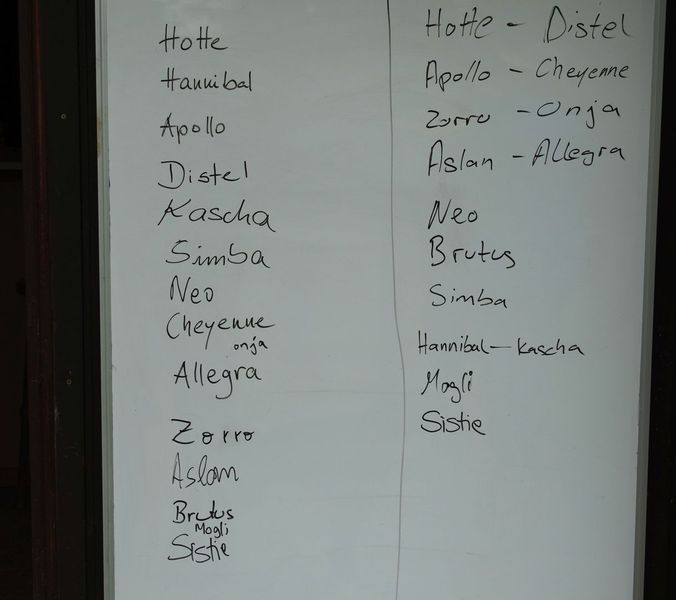 Hotte
Hannibal
Apollo
Distel
Kascha
Simba
Neo
Cheyenne
onja
Allegra
Zorro
Aslan
Brutus
Mogli
Sistie
Hotte - Distel
Apollo - Cheyenne
Zorro - Onja
Aslan - Allegra
Neo
Brutus
Simba
Hannibal - Kascha
Mogli
Sistie